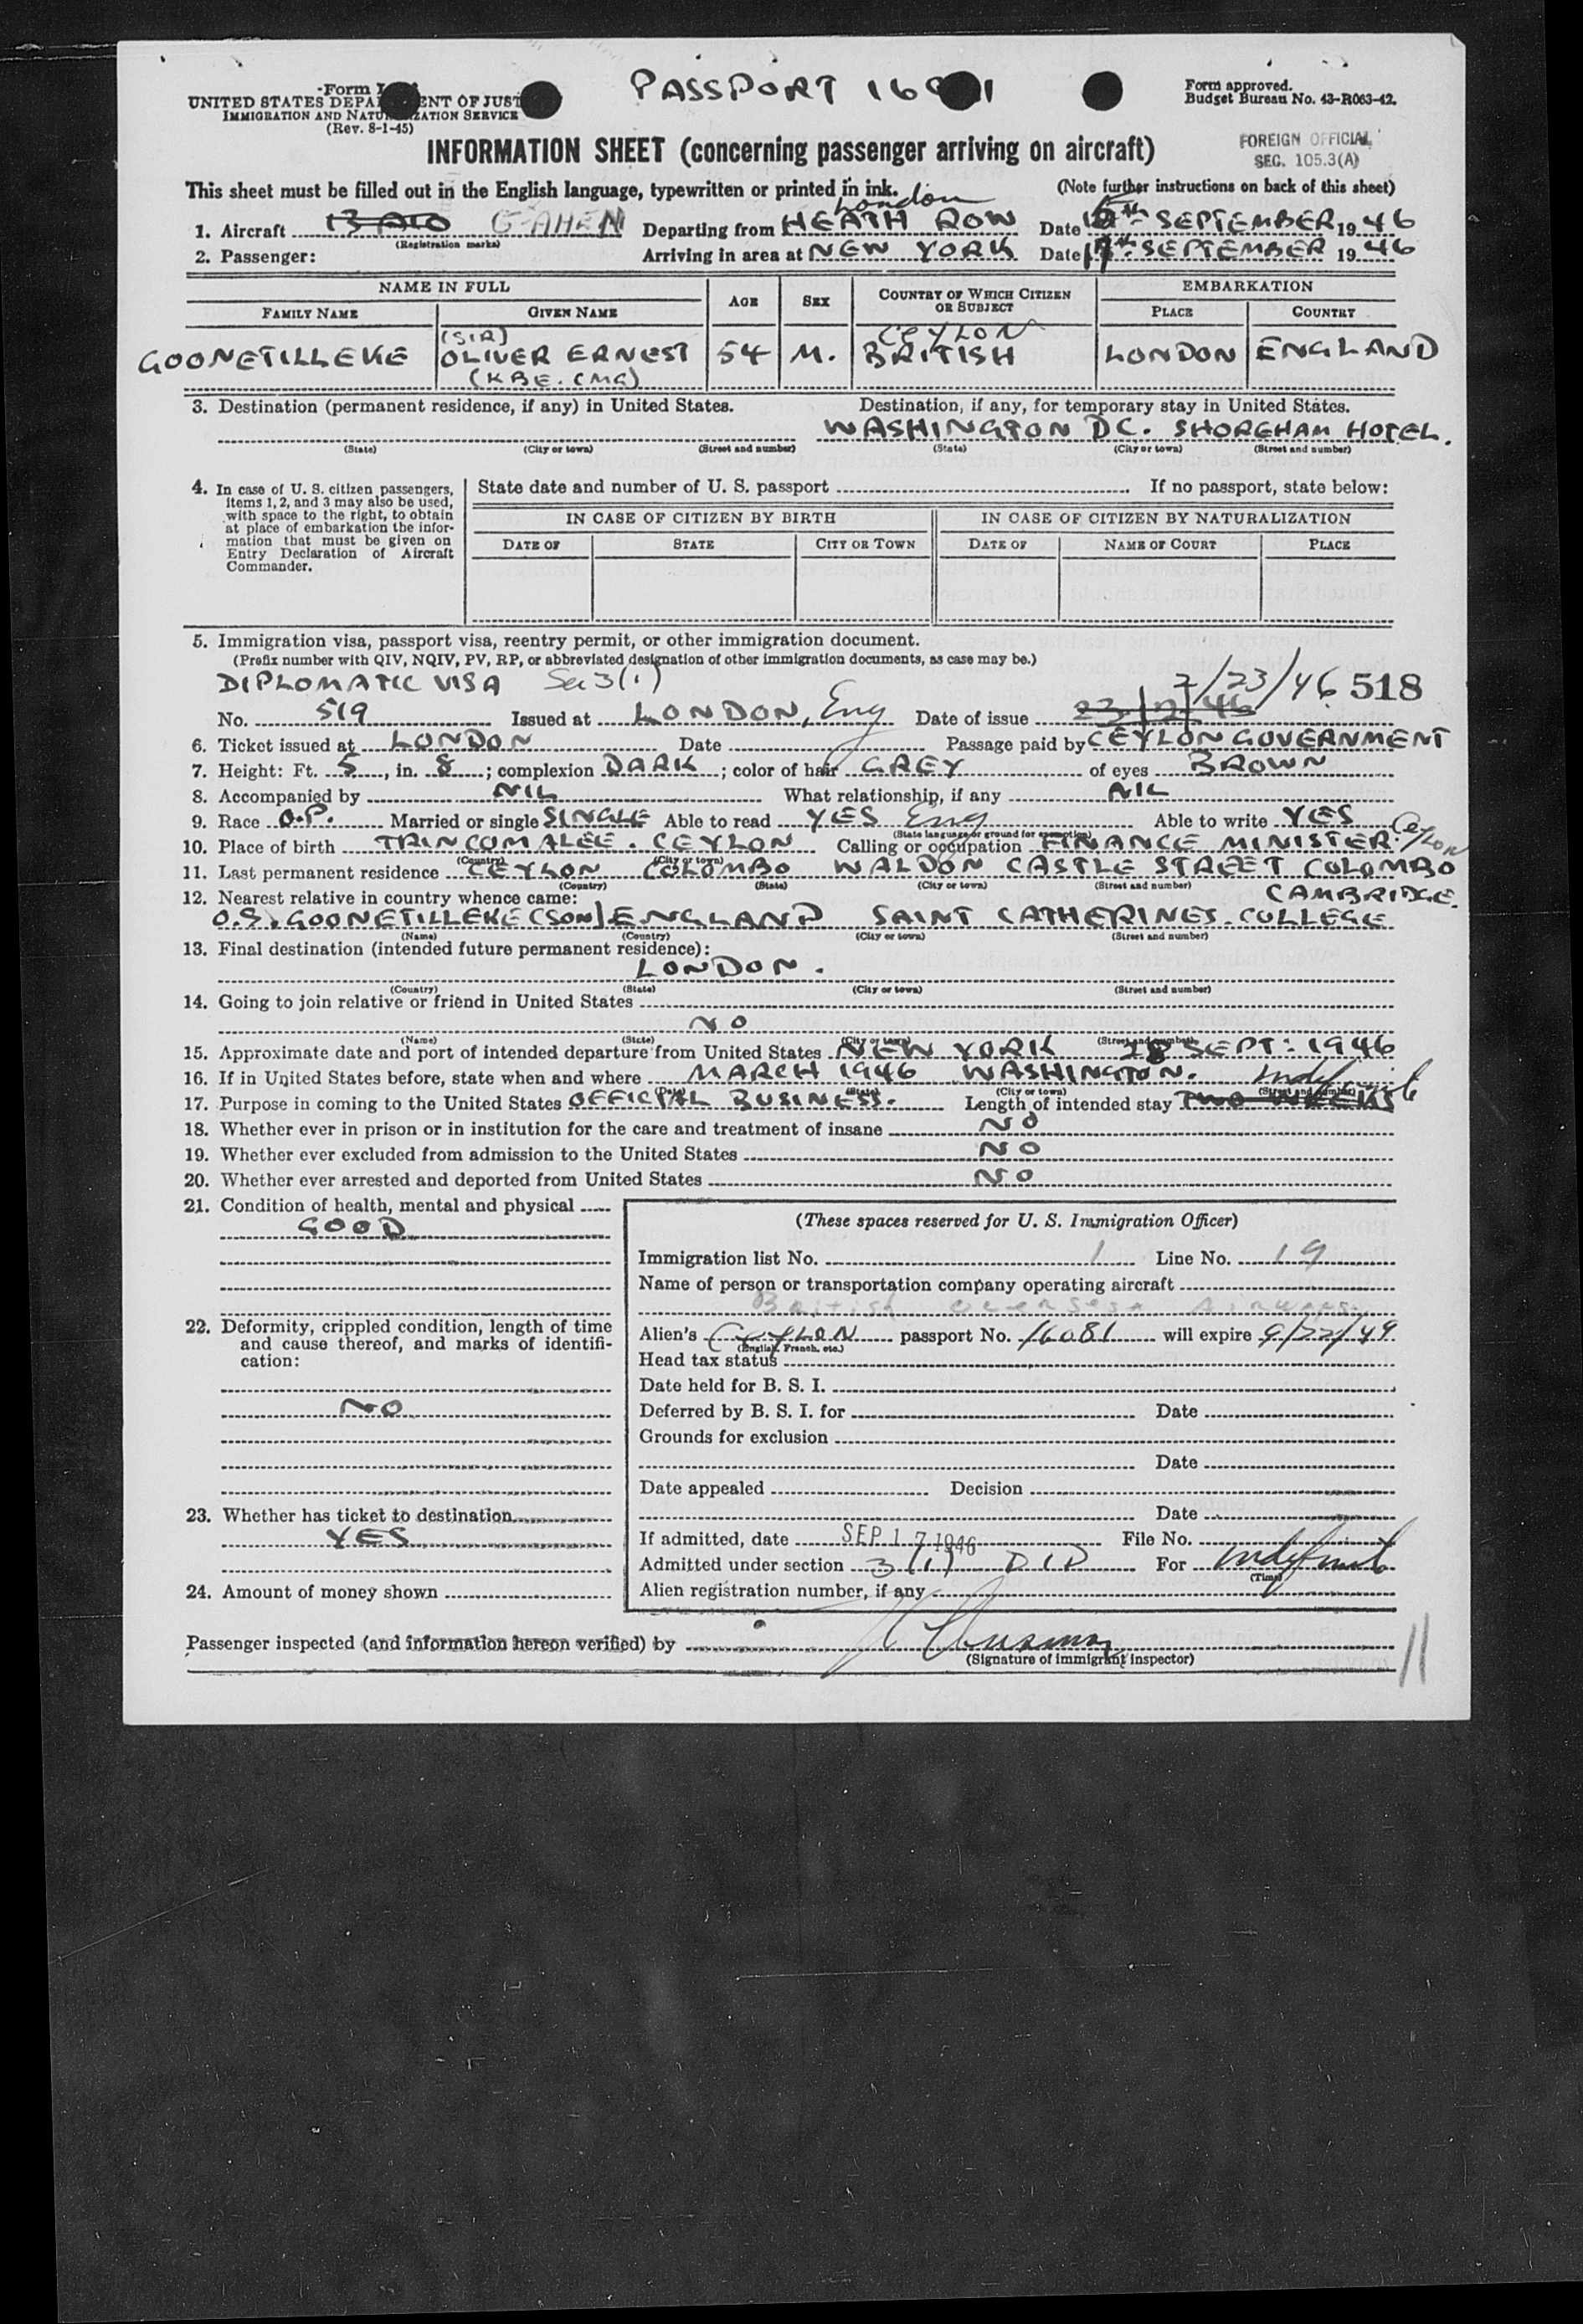 Form I
PASSPORT 16
Form approved.
Budget Bureau No. 43-R063-42.
UNITED STATES DEPA ENT OF JUST
IMMIGRATION AND NATU ZATION SERVICE
(Rev. 8-1-45)
INFORMATION SHEET (concerning passenger arriving on aircraft)
FOREIGN OFFICIAL
SEC. 105.3(A)
This sheet must be filled out in the English language, typewritten or printed in ink.
(Note further instructions on back of this sheet)
London
1. Aircraft G-AHEN Departing from HEATH ROW Date SEPTEMBER 1946
(Registration marks)
2. Passenger: Arriving in area at NEW YORK Date 17th SEPTEMBER 1946
NAME IN FULL AGE SEX COUNTRY OF WHICH CITIZEN OR SUBJECT EMBARKATION
FAMILY NAME GIVEN NAME PLACE COUNTRY
(SIR) CEYLON
GOONETILLEKE OLIVER ERNEST 54 M. BRITISH LONDON ENGLAND
(KBE. CMG)
3. Destination (permanent residence, if any) in United States. Destination, if any, for temporary stay in United States.
WASHINGTON DC. SHOREHAM HOTEL.
(State) (City or town) (Street and number) (State) (City or town) (Street and number)
4. In case of U. S. citizen passengers, items 1, 2, and 3 may also be used, with space to the right, to obtain at place of embarkation the information that must be given on Entry Declaration of Aircraft Commander.
State date and number of U. S. passport If no passport, state below:
IN CASE OF CITIZEN BY BIRTH IN CASE OF CITIZEN BY NATURALIZATION
DATE OF STATE CITY OR TOWN DATE OF NAME OF COURT PLACE
5. Immigration visa, passport visa, reentry permit, or other immigration document.
(Prefix number with QIV, NQIV, PV, RP, or abbreviated designation of other immigration documents, as case may be.)
DIPLOMATIC VISA Sec 3(1) 2/23/46 518
No. 519 Issued at LONDON, Eng Date of issue 23/2/46
6. Ticket issued at LONDON Date Passage paid by CEYLON GOVERNMENT
7. Height: Ft. 5, in. 8; complexion DARK; color of hair GREY of eyes BROWN
8. Accompanied by NIL What relationship, if any NIL
9. Race O.P. Married or single SINGLE Able to read YES Eng Able to write YES
(State language or ground for exemption)
10. Place of birth TRINCOMALEE. CEYLON Calling or occupation FINANCE MINISTER. Ceylon
(Country) (City or town)
11. Last permanent residence CEYLON COLOMBO WALDON CASTLE STREET COLOMBO
(Country) (State) (City or town) (Street and number)
12. Nearest relative in country whence came: CAMBRIDGE.
O.S. GOONETILLEKE (SON) ENGLAND SAINT CATHERINES COLLEGE
(Name) (Country) (City or town) (Street and number)
13. Final destination (intended future permanent residence):
LONDON.
(Country) (State) (City or town) (Street and number)
14. Going to join relative or friend in United States
NO
(Name) (State) (City or town) (Street and number)
15. Approximate date and port of intended departure from United States NEW YORK 28 SEPT: 1946
16. If in United States before, state when and where MARCH 1946 WASHINGTON. Indefinite
(Date) (State) (City or town) (Street and number)
17. Purpose in coming to the United States OFFICIAL BUSINESS. Length of intended stay TWO WEEKS
18. Whether ever in prison or in institution for the care and treatment of insane NO
19. Whether ever excluded from admission to the United States NO
20. Whether ever arrested and deported from United States NO
21. Condition of health, mental and physical
GOOD
(These spaces reserved for U. S. Immigration Officer)
Immigration list No. 1 Line No. 19
Name of person or transportation company operating aircraft
British Overseas Airways
22. Deformity, crippled condition, length of time and cause thereof, and marks of identification:
NO
Alien's CEYLON passport No. 16081 will expire 9/22/49
(English, French, etc.)
Head tax status
Date held for B. S. I.
Deferred by B. S. I. for Date
Grounds for exclusion
Date
Date appealed Decision
23. Whether has ticket to destination Date
YES
If admitted, date SEP 17 1946 File No.
Admitted under section 3(1) DIP For Indefinite
(Time)
24. Amount of money shown Alien registration number, if any
Passenger inspected (and information hereon verified) by
(Signature of immigrant inspector)
11